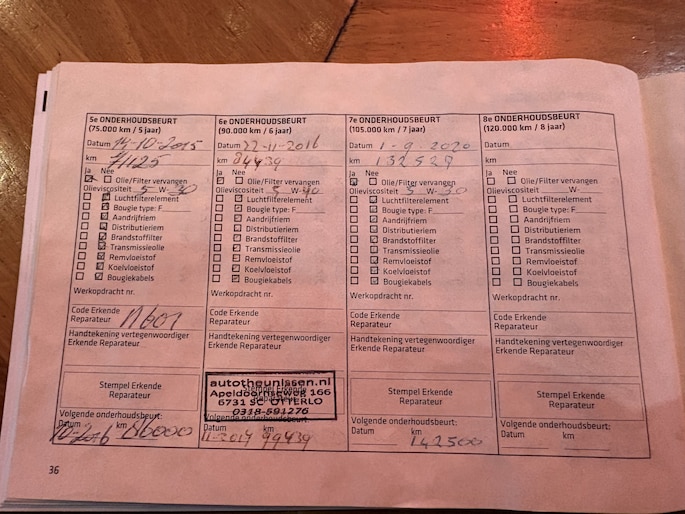 5e ONDERHOUDSBEURT
(75.000 km / 5 jaar)
Datum 14-10-2015
km 71125
Ja Nee
Olie/Filter vervangen
Olieviscositeit 5 W- 30
Luchtfilterelement
Bougie type: F
Aandrijfriem
Distributieriem
Brandstoffilter
Transmissieolie
Remvloeistof
Koelvloeistof
Bougiekabels
Werkopdracht nr.
Code Erkende
Reparateur N601
Handtekening vertegenwoordiger
Erkende Reparateur
Stempel Erkende
Reparateur
Volgende onderhoudsbeurt:
Datum km
10-2016 86000
6e ONDERHOUDSBEURT
(90.000 km / 6 jaar)
Datum 22-11-2016
km 84439
Ja Nee
Olie/Filter vervangen
Olieviscositeit 5 W-
Luchtfilterelement
Bougie type: F
Aandrijfriem
Distributieriem
Brandstoffilter
Transmissieolie
Remvloeistof
Koelvloeistof
Bougiekabels
Werkopdracht nr.
Code Erkende
Reparateur
Handtekening vertegenwoordiger
Erkende Reparateur
autotheunissen.nl
Apeldoornseweg 166
6731 SC OTTERLO
0318-591276
Volgende onderhoudsbeurt:
Datum km
11-2017 99439
7e ONDERHOUDSBEURT
(105.000 km / 7 jaar)
Datum 1-9-2020
km 132527
Ja Nee
Olie/Filter vervangen
Olieviscositeit 5 W- 30
Luchtfilterelement
Bougie type: F
Aandrijfriem
Distributieriem
Brandstoffilter
Transmissieolie
Remvloeistof
Koelvloeistof
Bougiekabels
Werkopdracht nr.
Code Erkende
Reparateur
Handtekening vertegenwoordiger
Erkende Reparateur
Stempel Erkende
Reparateur
Volgende onderhoudsbeurt:
Datum km
142500
8e ONDERHOUDSBEURT
(120.000 km / 8 jaar)
Datum
km
Ja Nee
Olie/Filter vervangen
Olieviscositeit W-
Luchtfilterelement
Bougie type: F
Aandrijfriem
Distributieriem
Brandstoffilter
Transmissieolie
Remvloeistof
Koelvloeistof
Bougiekabels
Werkopdracht nr.
Code Erkende
Reparateur
Handtekening vertegenwoordiger
Erkende Reparateur
Stempel Erkende
Reparateur
Volgende onderhoudsbeurt:
Datum km
36